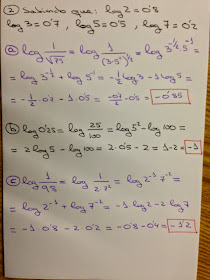 ② Sabiendo que: log 2 = 0'8
log 3 = 0'7, log 5 = 0'5, log 7 = 0'2
ⓐ log 1/√75 = log 1/(3·5²)^½ = log 3^-½ · 5^-1 =
= log 3^-½ + log 5^-1 = -½ log 3 - 1 log 5 =
= -½ · 0'7 - 1 · 0'5 = -0'7/2 - 0'5 = -0'85
ⓑ log 0'25 = log 25/100 = log 5² - log 100 =
= 2 log 5 - log 100 = 2 · 0'5 - 2 = 1 - 2 = -1
ⓒ log 1/98 = log 1/2·7² = log 2^-1 · 7^-2 =
= log 2^-1 + log 7^-2 = -1 · log 2 - 2 log 7
= -1 · 0'8 - 2 · 0'2 = -0'8 - 0'4 = -1'2